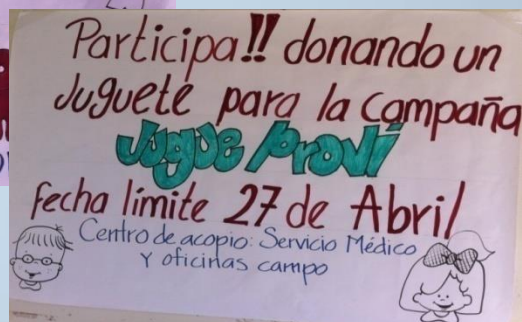 Participa!! donando un
Juguete para la Campaña
Jugue Proví
fecha límite 27 de Abril
Centro de acopio: Servicio Médico
y oficinas campo